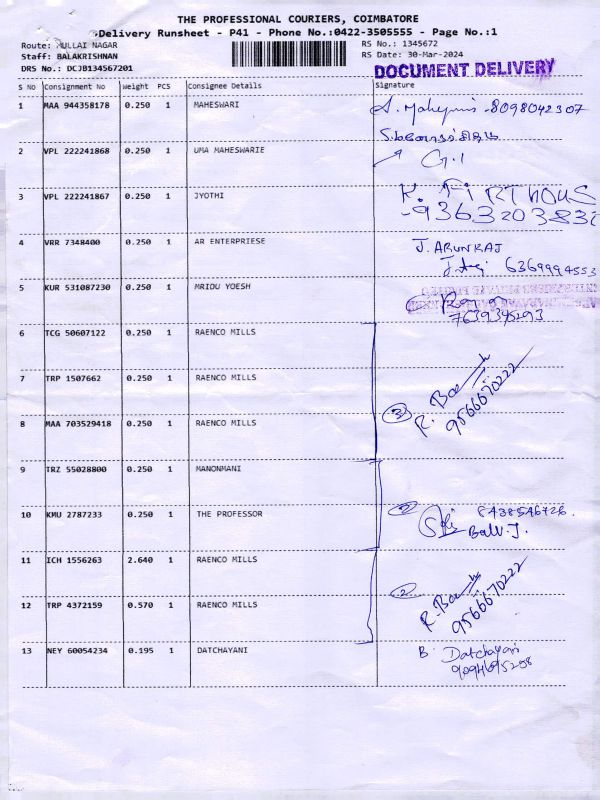 THE PROFESSIONAL COURIERS, COIMBATORE
Delivery Runsheet - P41 - Phone No.:0422-3505555 - Page No.:1
Route: MULLAI NAGAR
RS No.: 1345672
Staff: BALAKRISHNAN
RS Date: 30-Mar-2024
DRS No.: DCJB134567201
DOCUMENT DELIVERY
S No Consignment No Weight PCS Consignee Details Signature
1 MAA 944358178 0.250 1 MAHESWARI 8098042307
2 VPL 222241868 0.250 1 UMA MAHESWARIE G.1
3 VPL 222241867 0.250 1 JYOTHI K. FIRTHOUS
4 VRR 7348400 0.250 1 AR ENTERPRIESE J. ARUNRAJ
6369994553
5 KUR 531087230 0.250 1 MRIDU YOESH
7639345293
6 TCG 50607122 0.250 1 RAENCO MILLS
7 TRP 1507662 0.250 1 RAENCO MILLS
8 MAA 703529418 0.250 1 RAENCO MILLS 3 R.
9566670222
9 TRZ 55028800 0.250 1 MANONMANI
10 KMU 2787233 0.250 1 THE PROFESSOR 2 8438546726
11 ICH 1556263 2.640 1 RAENCO MILLS
12 TRP 4372159 0.570 1 RAENCO MILLS 2 R.
9566670222
13 NEY 60054234 0.195 1 DATCHAYANI B. Datchayani